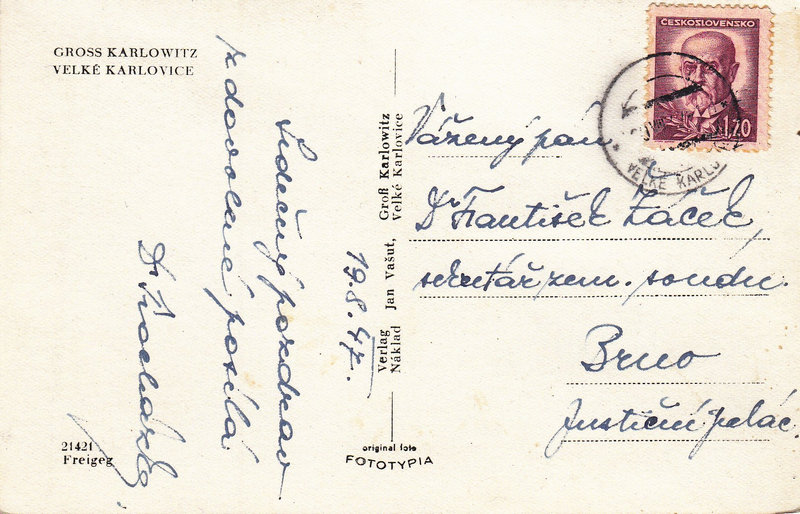 GROSS KARLOWITZ
VELKÉ KARLOVICE
Srdečný pozdrav
z dovolené posílá
Dr
19.8.47.
Verlag Jan Vašut, Groß Karlowitz
Náklad Velké Karlovice
ČESKOSLOVENSKO
1,20
VELKÉ KARLO
Vážený pán
Dr František Žáček,
sekretář zem. soudu.
Brno
Justiční palác.
21421
Freigeg
original foto
FOTOTYPIA